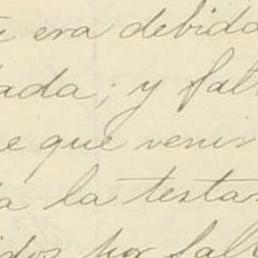 e era debido
ada; y fal
e que venir
a la testa
idos por fal